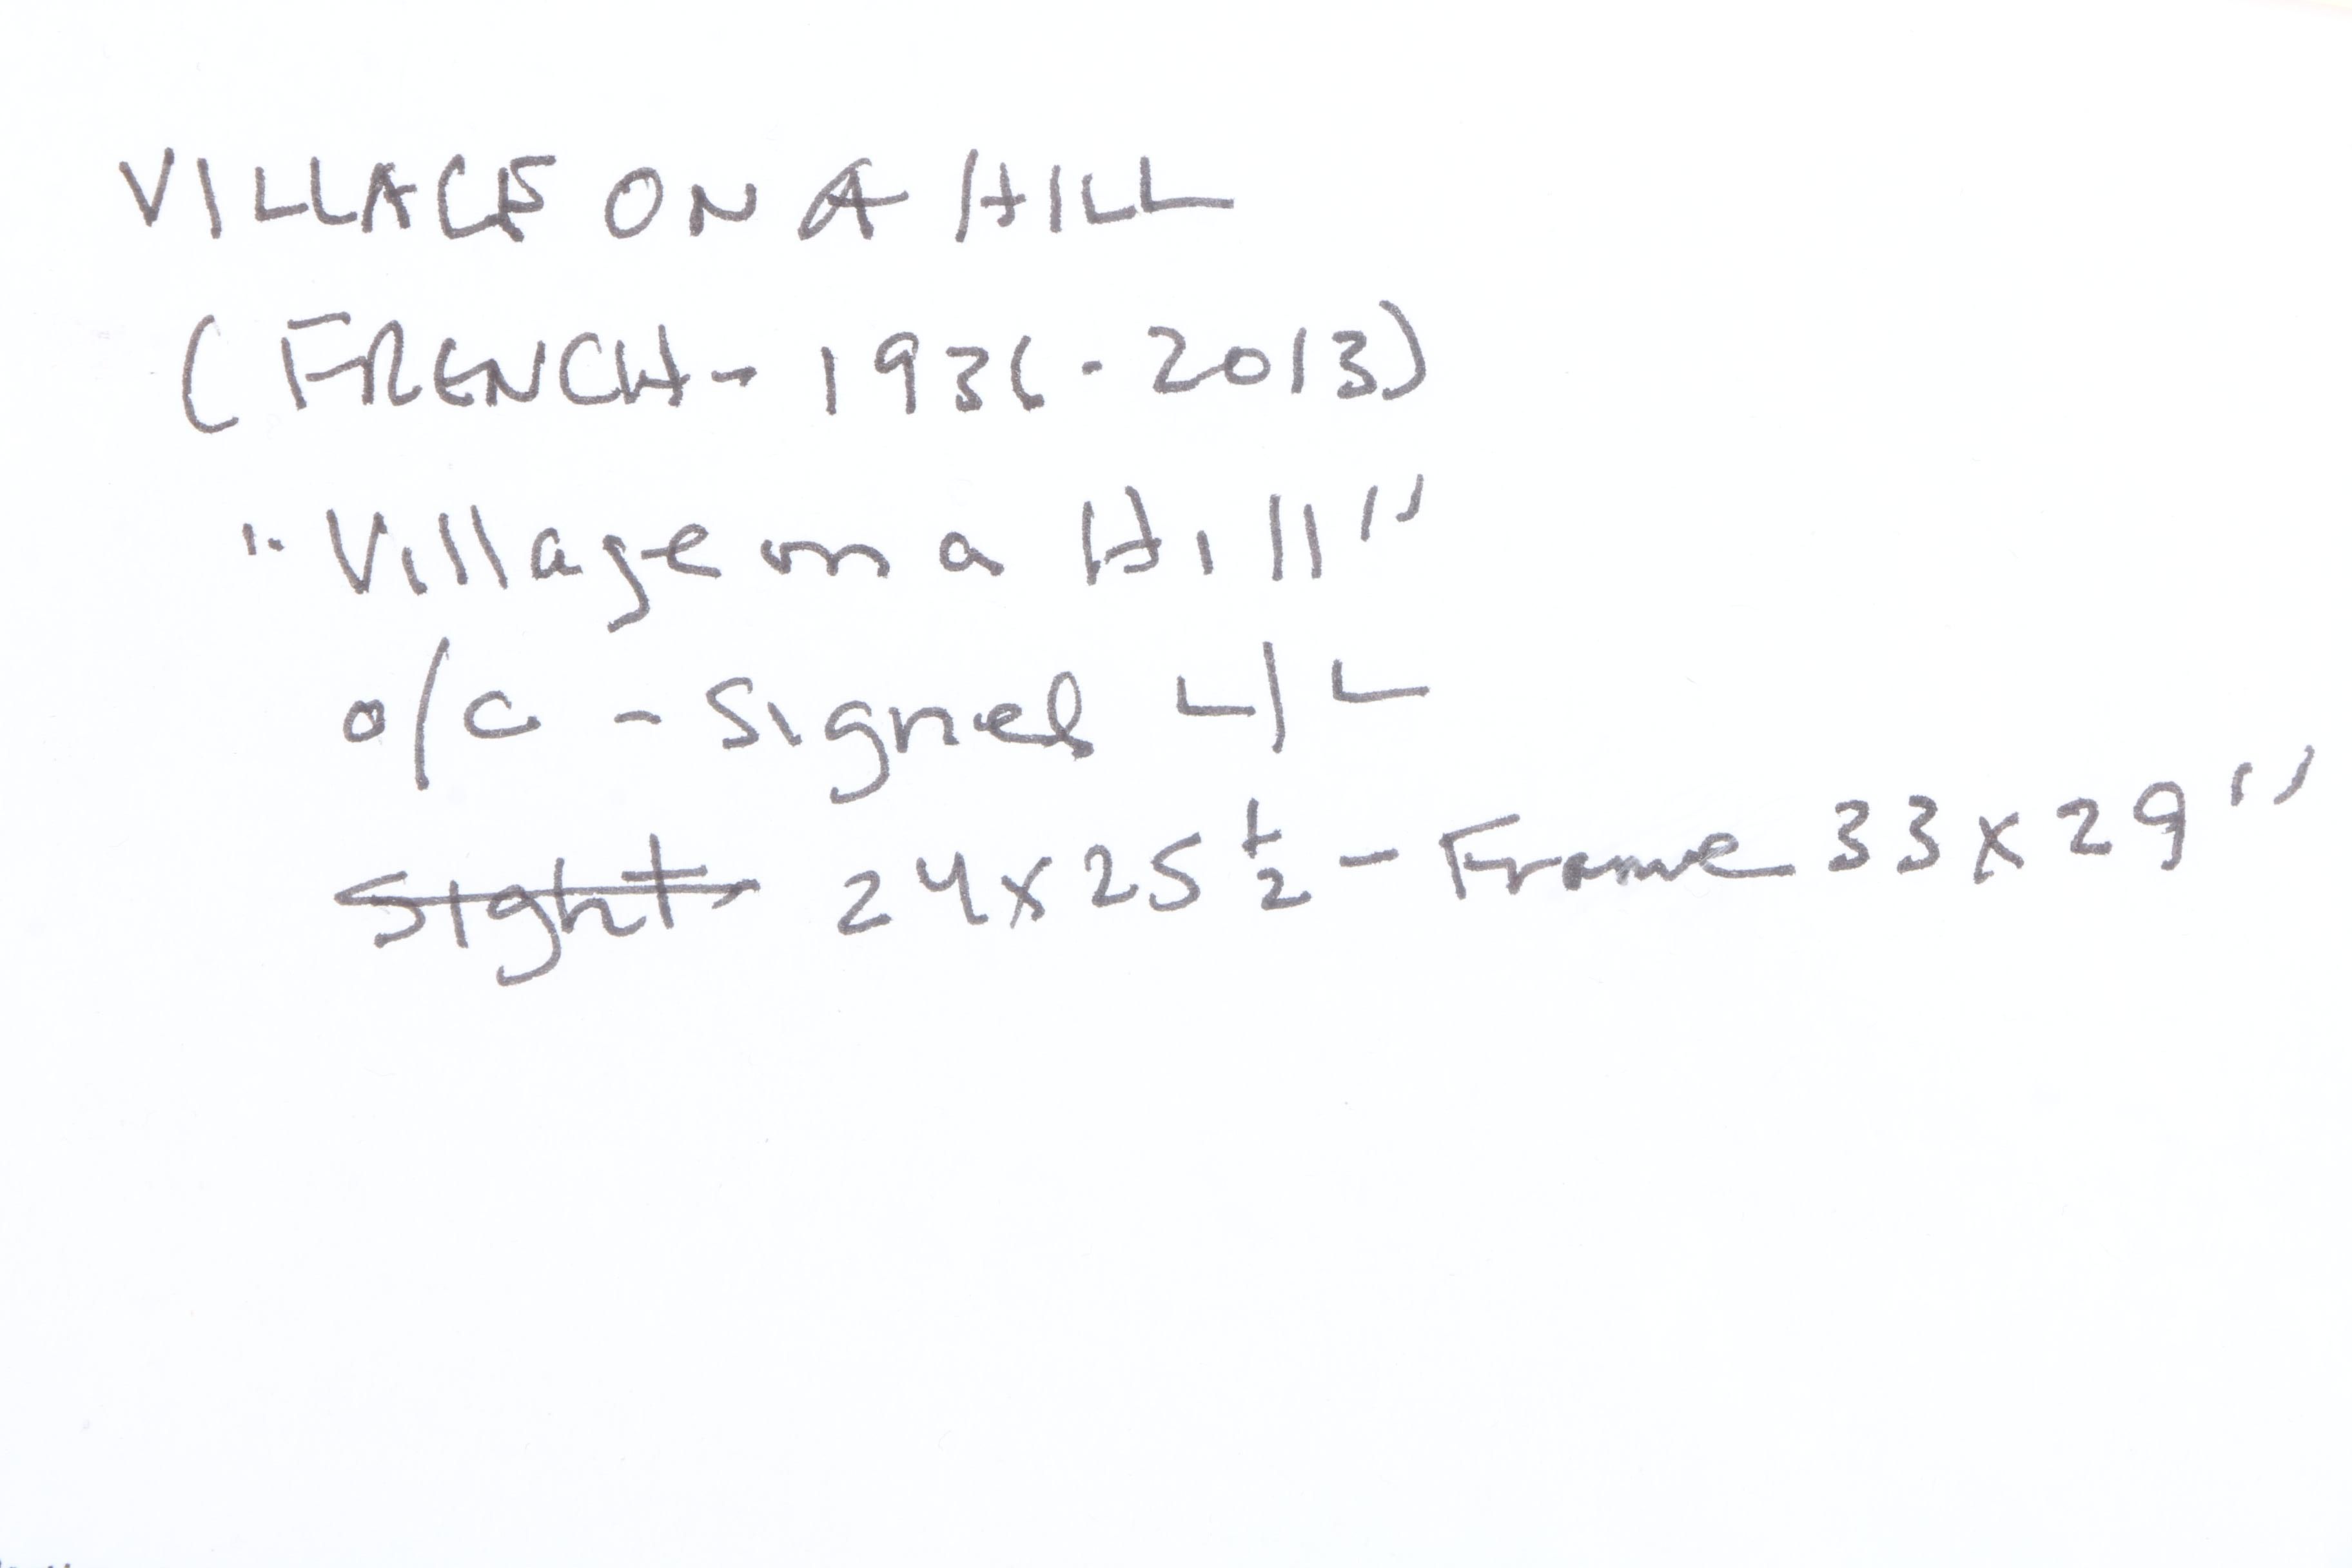 VILLAGE ON A HILL
(FRENCH - 1936 - 2013)
"Village on a Hill"
o/c - Signed L/L
Sight 24 x 25 1/2 - Frame 33 x 29"